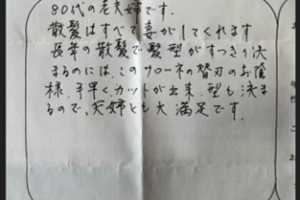 80代の老夫婦です。
散髪はすべて妻がしてくれます
長年の散髪で髪型がすっきり決
まるのには、このナローネの替刃のお蔭
様、手早くカットが出来、型も決ま
るので、夫婦とも大満足です。